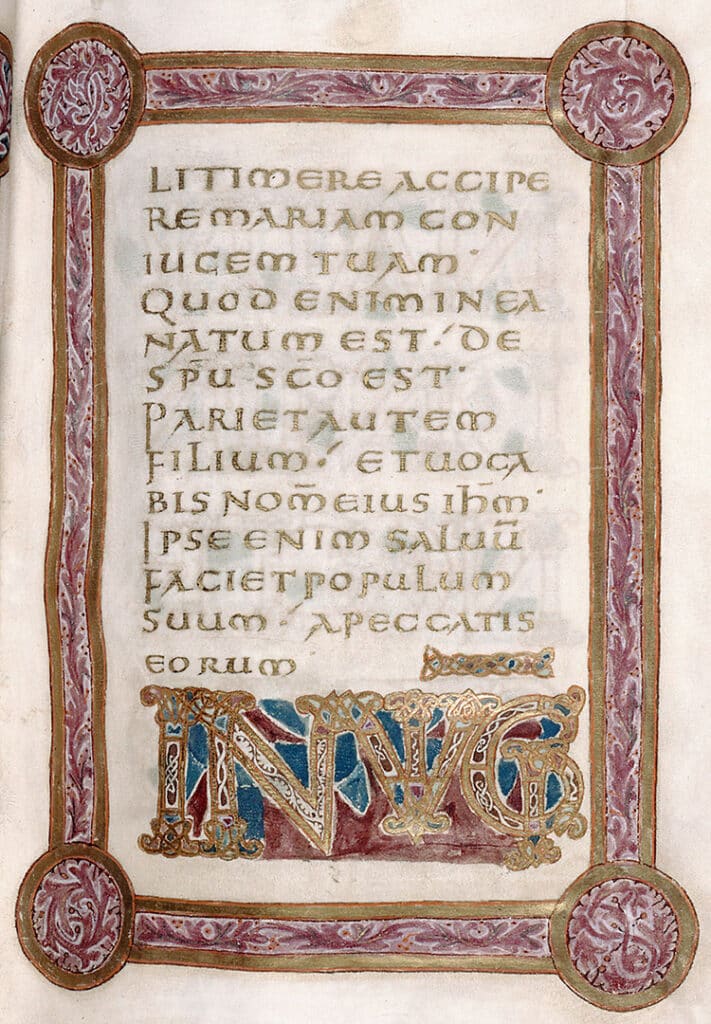 LITIMERE ACCIPE
RE MARIAM CON
IUGEM TUAM·
QUOD ENIM IN EA
NATUM EST· DE
SP̄U SC̄O EST·
PARIET AUTEM
FILIUM· ET UOCA
BIS NOM̄ EIUS IHM̄·
IPSE ENIM SALUŪ
FACIET POPULUM
SUUM· A PECCATIS
EORUM
IN VIG